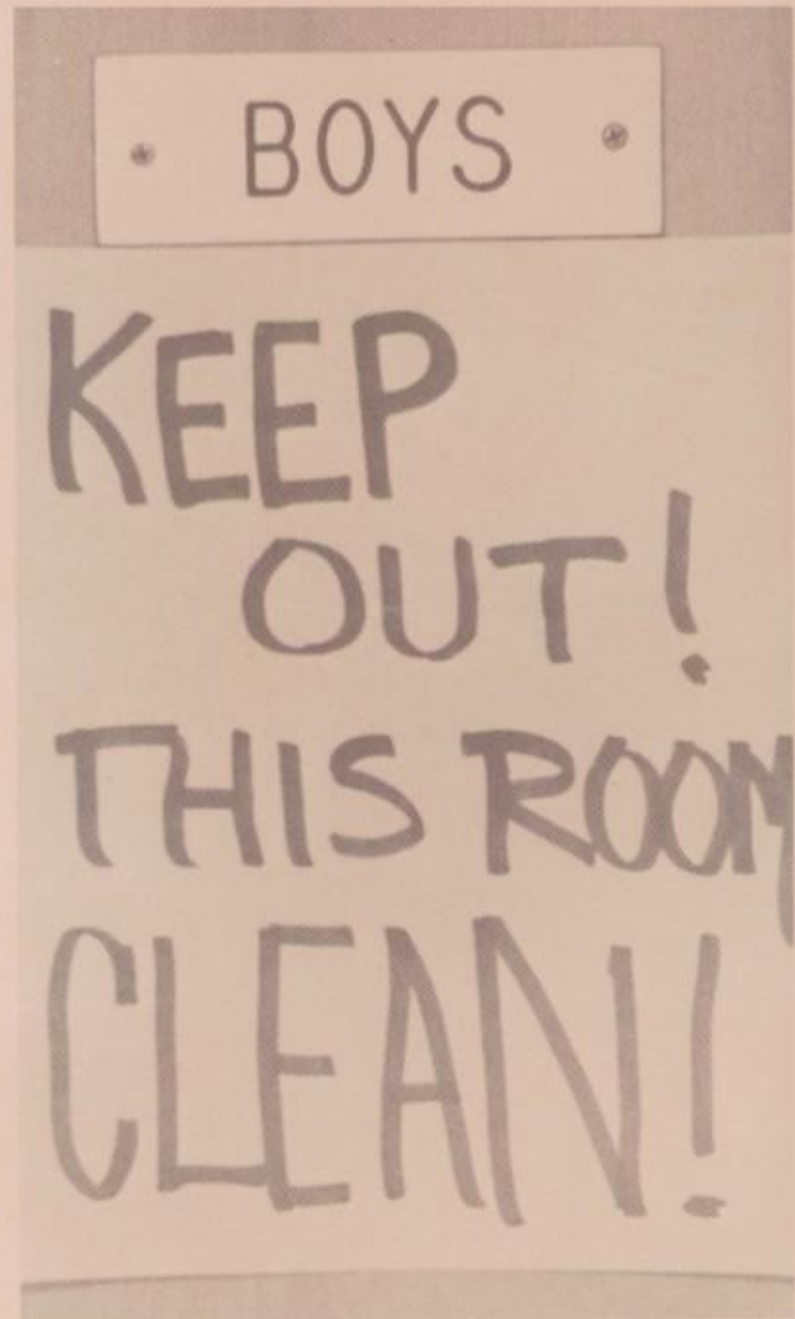 BOYS
KEEP
OUT!
THIS ROOM
CLEAN!